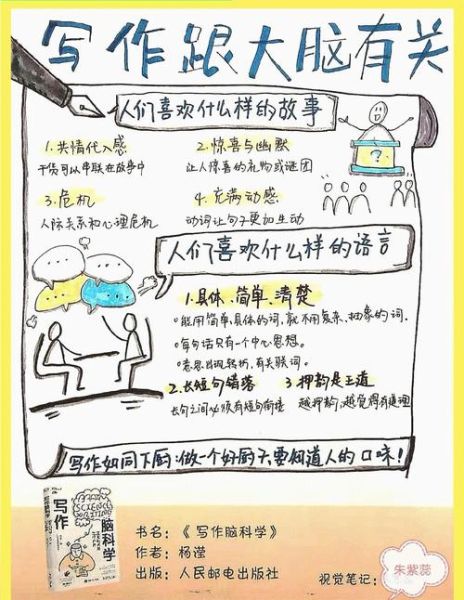 写作跟大脑有关
人们喜欢什么样的故事
1.共情代入感
干货可以串联在故事中
2.惊喜与幽默
让人惊喜的礼物或谜团
3.危机
人际关系和心理危机
4.充满动感
动词让句子更加生动
?
人们喜欢什么样的语言
1.具体、简单、清楚
能用简单、具体的词,就不用复杂、抽象的词。
每句话只有一个中心思想。
意思出现转折,有关联词。
2.长短句错落
长句之间必须有短句衔接
3 押韵是王道
越押韵,越觉得有道理
写作如同下厨:做一个好厨子,要知道人的口味!
写作
脑科学
书名:《 写作脑科学》
作者:杨滢
出版:人民邮电出版社
视觉笔记:
朱紫蕊